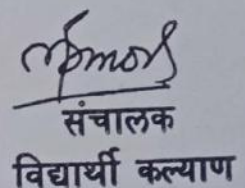 संचालक
विद्यार्थी कल्याण